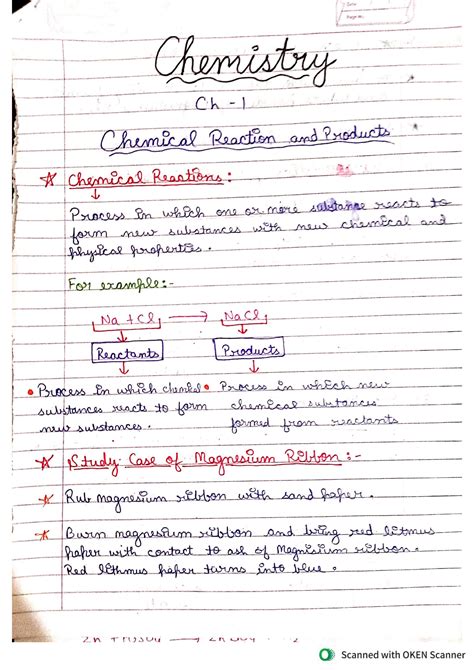 Date
Page No.
Chemistry
Ch - 1
Chemical Reaction and Products
☆ Chemical Reactions :
↓
Process in which one or more substance reacts to
form new substances with new chemical and
physical properties .
For example :-
Na + Cl, → NaCl,
Reactants Products
• Process in which chemical • Process in which new
substances reacts to form chemical substances
new substances. formed from reactants
☆ Study Case of Magnesium Ribbon :-
☆ Rub magnesium ribbon with sand paper .
☆ Burn magnesium ribbon and bring red litmus
paper with contact to ash of Magnesium ribbon.
Red lithmus paper turns into blue .
Scanned with OKEN Scanner